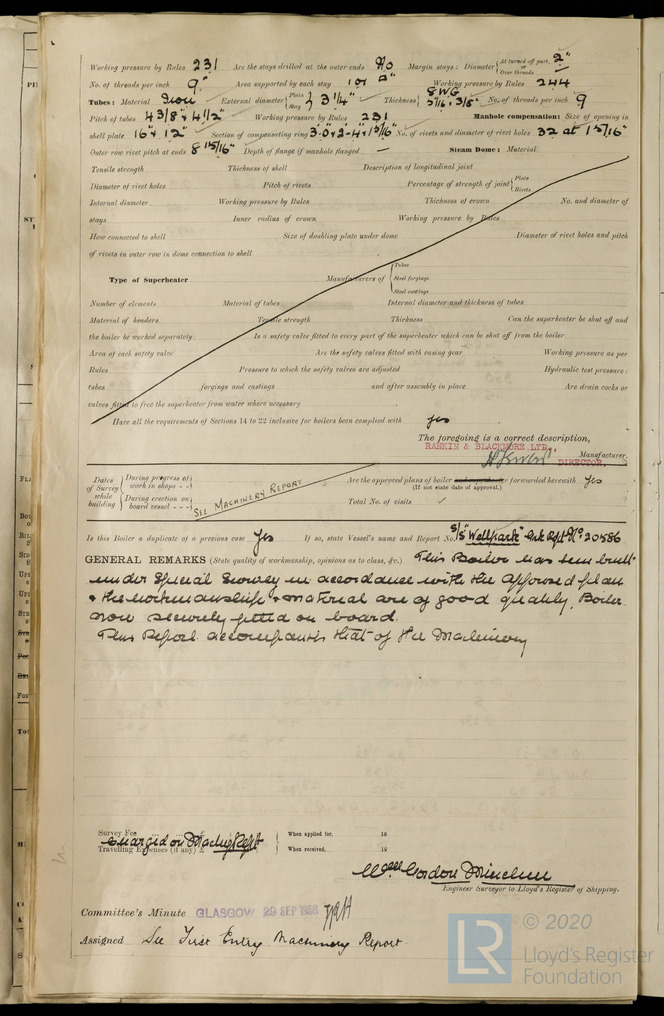 Working pressure by Rules 231 Are the stays drilled at the outer ends No Margin stays: Diameter { At turned off part, 2" Over threads
No. of threads per inch 9" Area supported by each stay Working pressure by Rules 244
Tubes: Material Iron External diameter { Plain Stay } 3 1/4" Thickness { 8 WG 5/16, 3/8" No. of threads per inch 9
Pitch of tubes 4 3/8" x 4 1/2" Working pressure by Rules 231 Manhole compensation: Size of opening in
shell plate 16" x 12" Section of compensating ring No. of rivets and diameter of rivet holes 32 at 1 5/16"
Outer row rivet pitch at ends 8 15/16" Depth of flange if manhole flanged — Steam Dome: Material
Tensile strength Thickness of shell Description of longitudinal joint
Diameter of rivet holes Pitch of rivets Percentage of strength of joint { Plate Rivets
Internal diameter Working pressure by Rules Thickness of crown No. and diameter of
stays Inner radius of crown Working pressure by Rules
How connected to shell Size of doubling plate under dome Diameter of rivet holes and pitch
of rivets in outer row in dome connection to shell
Type of Superheater Manufacturers of { Tubes Steel forgings Steel castings
Number of elements Material of tubes Internal diameter and thickness of tubes
Material of headers Tensile strength Thickness Can the superheater be shut off and
the boiler be worked separately Is a safety valve fitted to every part of the superheater which can be shut off from the boiler
Area of each safety valve Are the safety valves fitted with easing gear Working pressure as per
Rules Pressure to which the safety valves are adjusted Hydraulic test pressure:
tubes forgings and castings and after assembly in place Are drain cocks or
valves fitted to free the superheater from water where necessary
Have all the requirements of Sections 14 to 22 inclusive for boilers been complied with yes
The foregoing is a correct description,
RANKIN & BLACKMORE, LTD.,
Manufacturer.
DIRECTOR.
Dates of Survey while building { During progress of work in shops - - During erection on board vessel - - - } SEE MACHINERY REPORT
Are the approved plans of boiler and superheater forwarded herewith yes
(If not state date of approval.)
Total No. of visits
Is this Boiler a duplicate of a previous case Yes If so, state Vessel's name and Report No. S/S "Wellpark" Grk Rpt No 20586
GENERAL REMARKS (State quality of workmanship, opinions as to class, &c.) This Boiler has been built
under Special Survey in accordance with the approved plan
& the workmanship & material are of good quality. Boiler
now securely fitted on board.
This Report accompanies that of the Machinery
Survey Fee £ When applied for, 19
Charged on Machy Rept
Travelling Expenses (if any) £ When received, 19
Wm Gordon
Engineer Surveyor to Lloyd's Register of Shipping.
Committee's Minute GLASGOW 29 SEP 1936
Assigned See First Entry Machinery Report.
LR © 2020
Lloyd's Register
Foundation